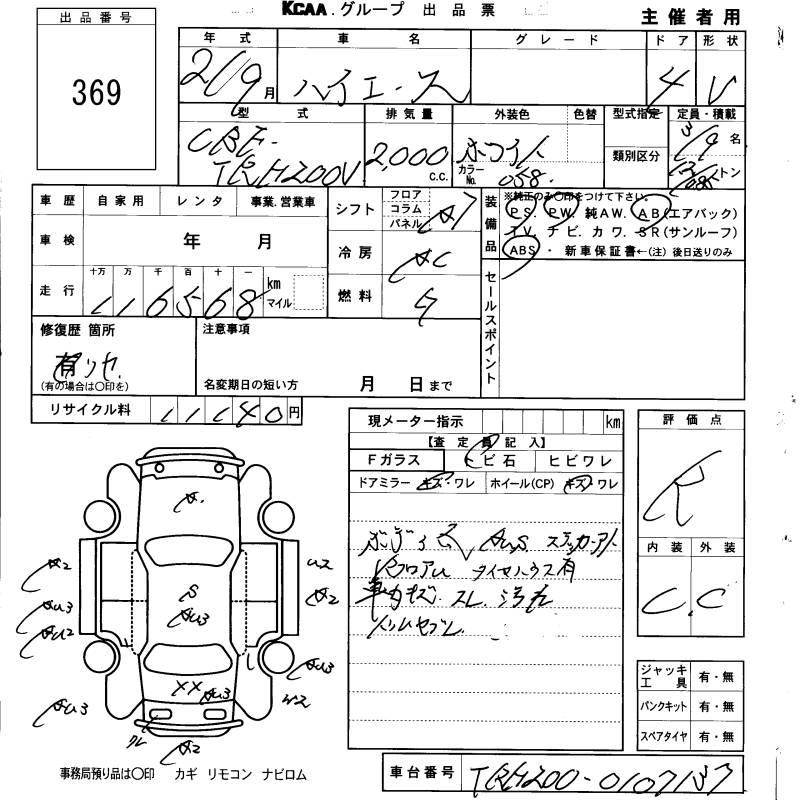 KCAA.グループ 出品票
主催者用
出品番号
369
年式 車名 グレード ドア 形状
21/9月 ハイエース 4 V
型式 排気量 外装色 色替 型式指定 定員・積載
CBF-
TRH200V 2,000 c.c. ホワイト カラーNo. 058 類別区分 3/9名
トン
車歴 自家用 レンタ 事業.営業車
シフト フロア コラム パネル AT
装備品 ※純正のみ〇印をつけて下さい。
PS. PW. 純AW. AB(エアバック)
TV. ナビ. カワ. SR(サンルーフ)
ABS ・ 新車保証書←(注)後日送りのみ
車検 年 月
冷房 AC
走行 十万 万 千 百 十 一
116568 km マイル
燃料
セールスポイント
修復歴 箇所
有 リヤ
(有の場合は〇印を)
注意事項
名変期日の短い方 月 日まで
リサイクル料 11640円
現メーター指示 km
【査定員記入】
Fガラス トビ石 ヒビワレ
ドアミラー キズ・ワレ ホイール(CP) キズ・ワレ
評価点
R
内装 外装
C. C
A.
S
AU3
A2
AU3
AU2
AU3
U2
A2
AU3
XX AU3
ワレ
A2
ボディ AUS ステッカーアト
Rフロア タイヤハウス有
キズ. スレ. 汚れ
ジャッキ工具 有・無
パンクキット 有・無
スペアタイヤ 有・無
事務局預り品は〇印 カギ リモコン ナビロム
車台番号 TRH200-0107137